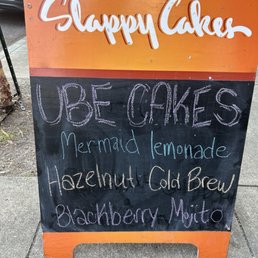 Slappy Cakes
UBE CAKES
Mermaid lemonade
Hazelnut Cold Brew
Blackberry Mojito